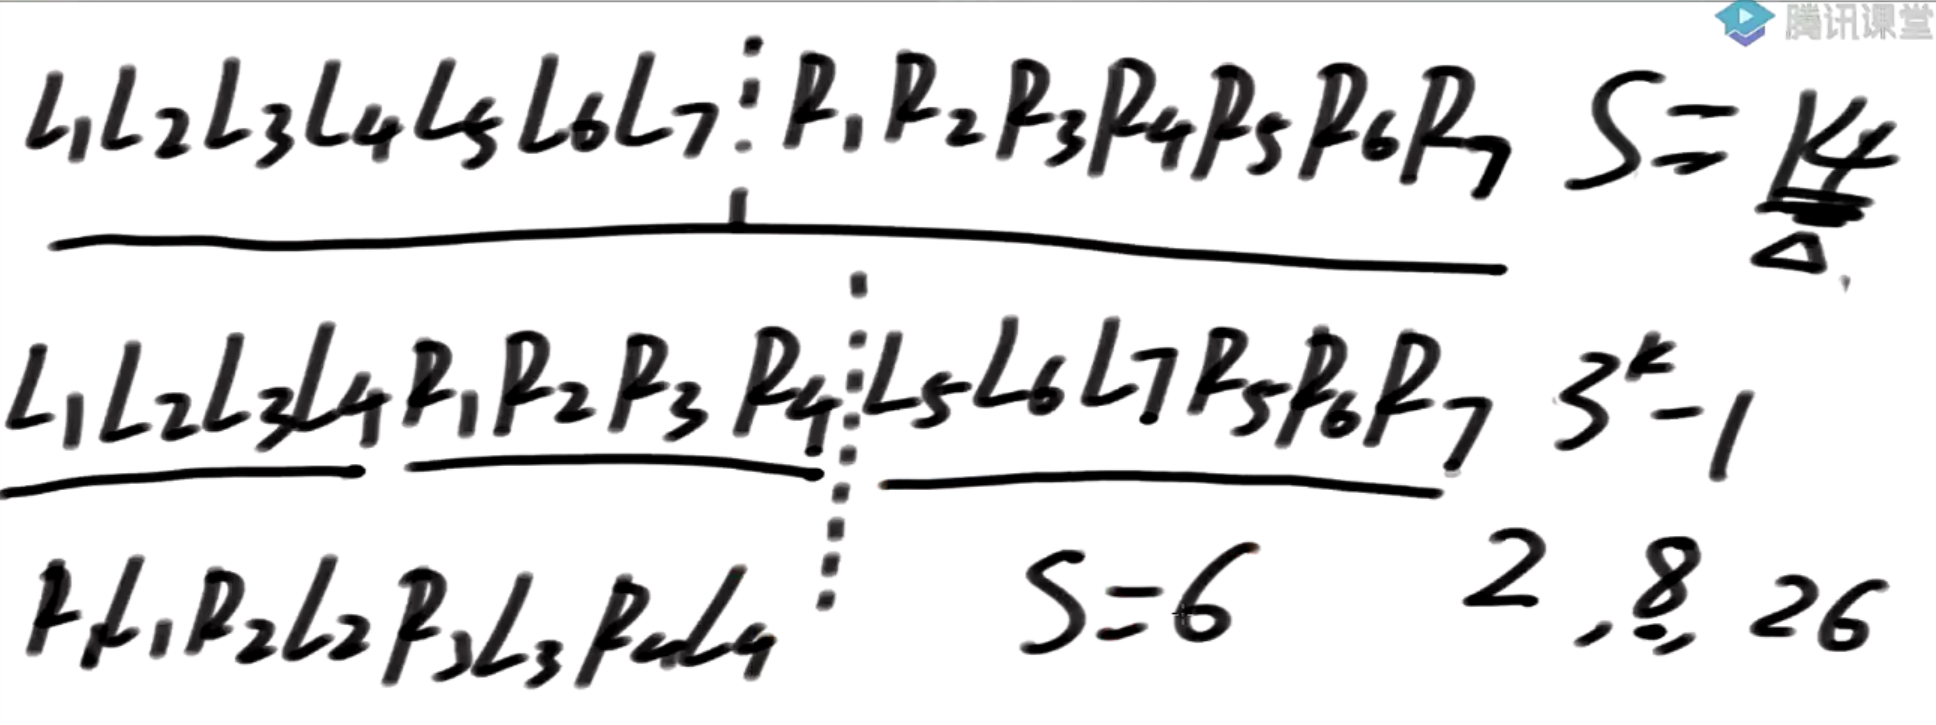 腾讯课堂
L₁L₂L₃L₄L₅L₆L₇ R₁R₂R₃R₄R₅R₆R₇ S=14
L₁L₂L₃L₄R₁R₂R₃R₄ L₅L₆L₇R₅R₆R₇ 3ᵏ-1
R₁L₁R₂L₂R₃L₃R₄L₄ S=6 2,8,26